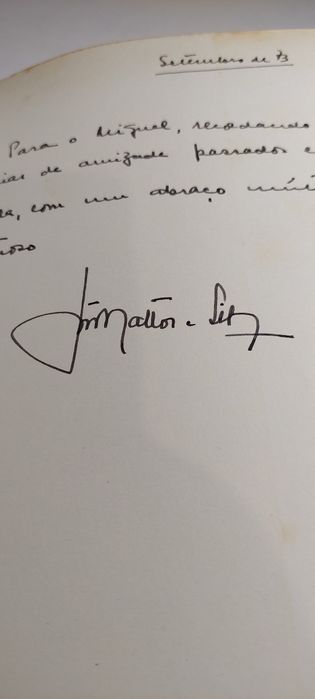 Setembro de 73
Para o Miguel, recordando
ias de amizade passados e
com um abraço
João Mattos e Silva